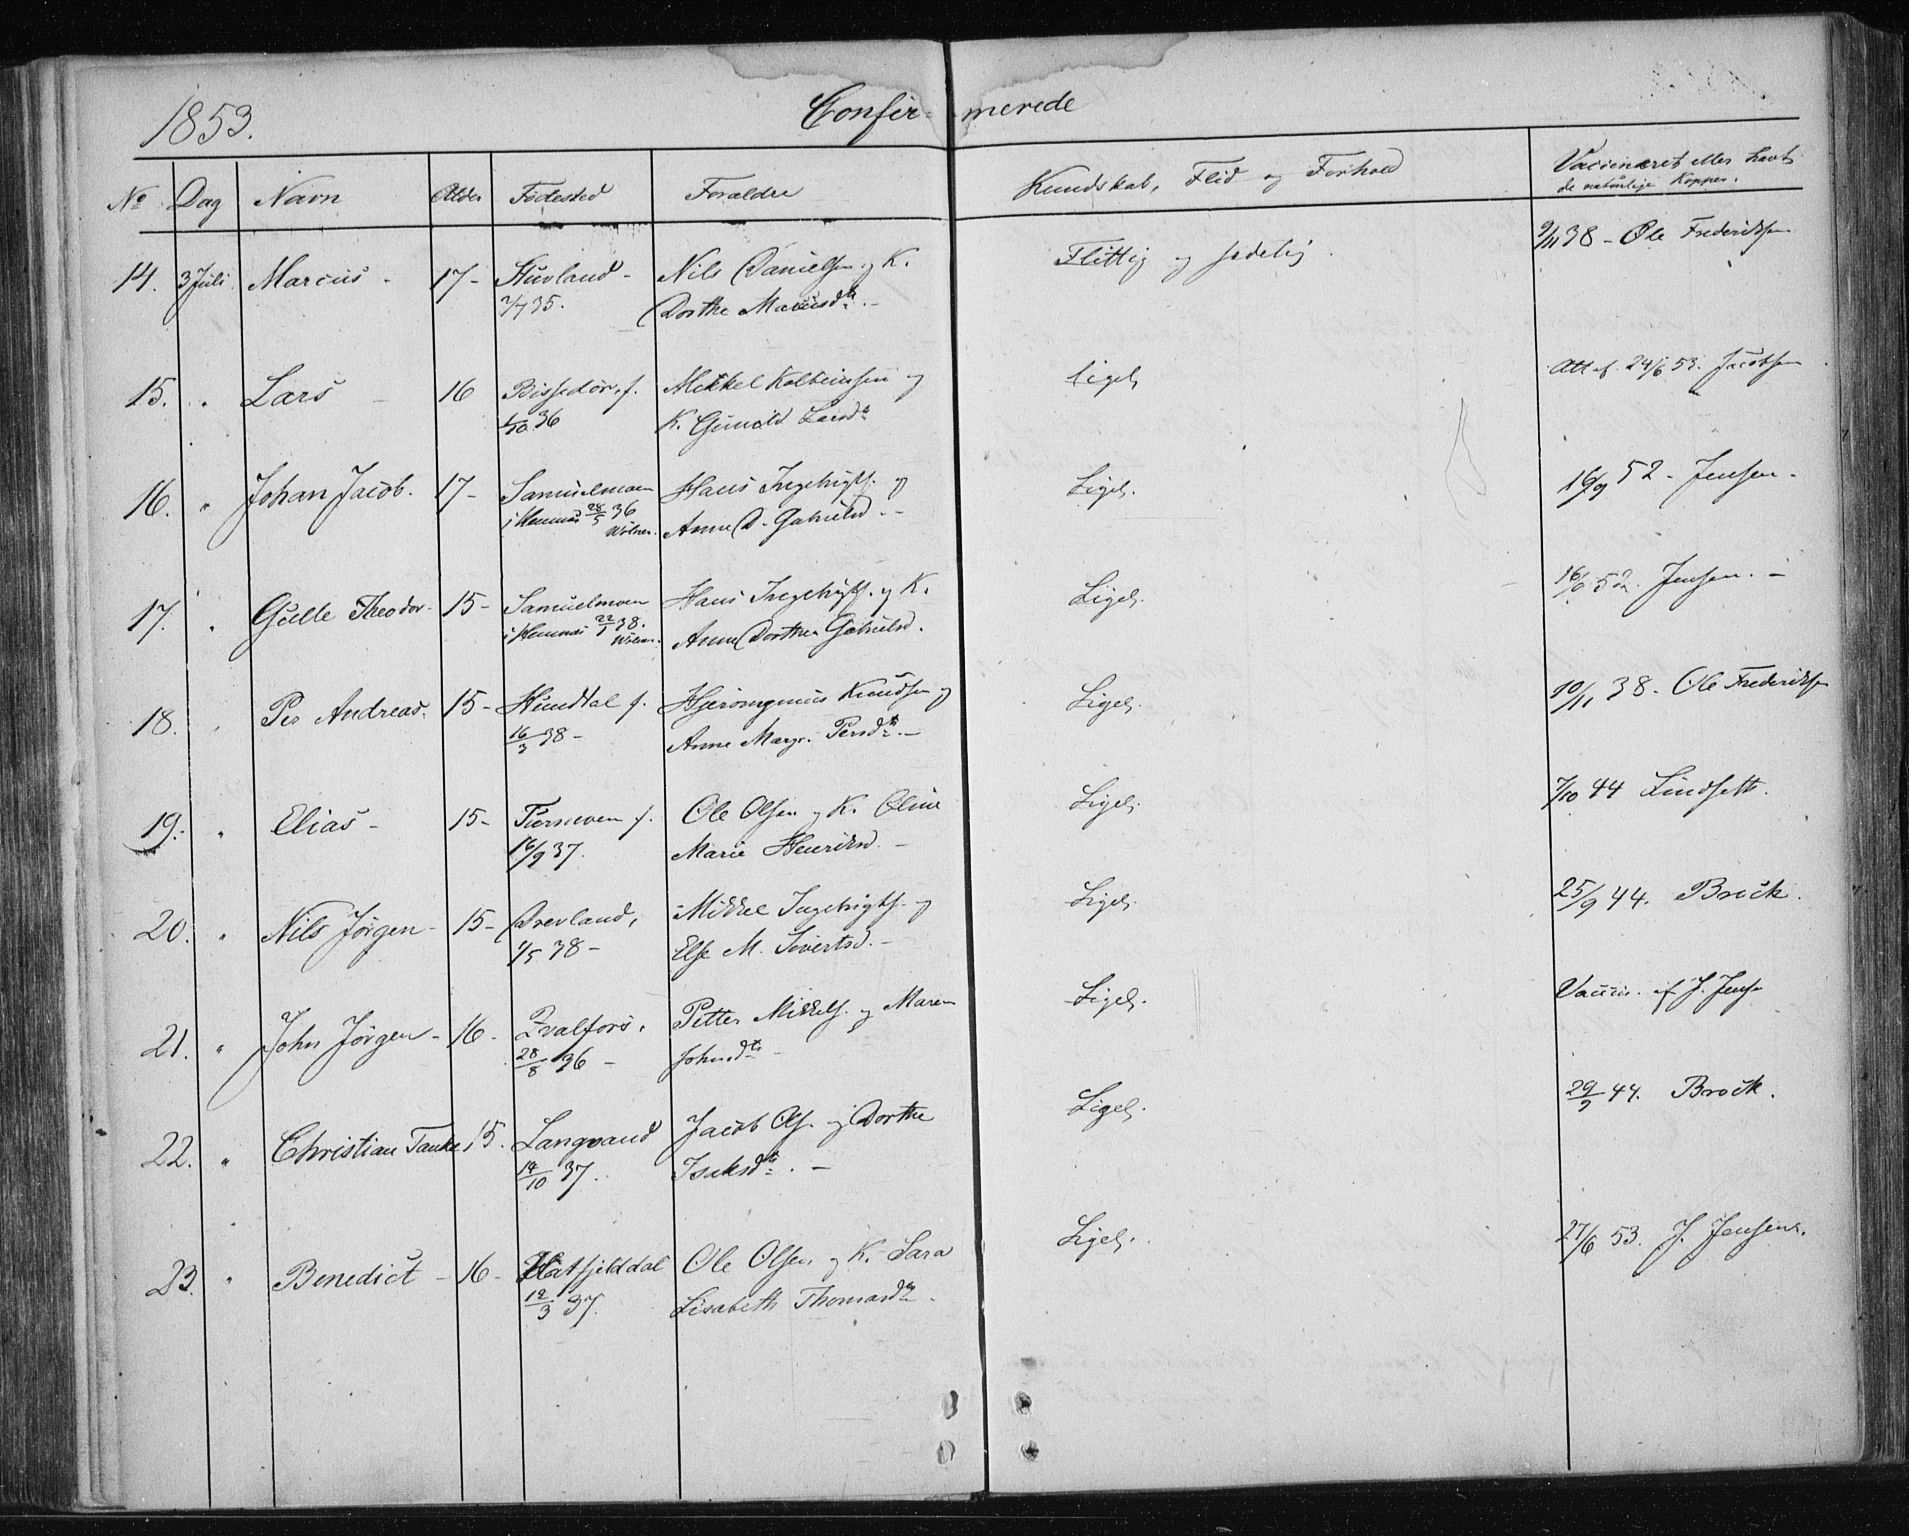 1853.
Confir-merede
No Dag Navn Alder Födested Forældre Kundskab, Flid og Forhold Vaccineret eller havt
de naturlige Kopper.
14. 3 Juli. Marcus - 17 - Stuvland - Nils Danielsen og K. Flittig og sædelig. 9/11 38 - Ole Frederiksen
2/7 35. Dorthe Marcusdtr. -
15. " Lars - 16 Mikkel Kolbeinsen og Ligel. Att. af 24/6 53. Jacobsen
36 K. Gunild Larsdtr
16. " Johan Jacob. 17 - Samuelmoen Hans Ingebrigts. og Ligel. 16/9 52 - Jensen -
i Hemnæs 28/5 36 Anne D. Gabrielsd. -
17. " Gulle Theodor - 15 - Samuelmoen Hans Ingebrigts. og K. Ligel. 16/9 52. Jensen. -
i Hemnæs 22/1 38. Anne Dorthea Gabrielsd.
18. " Per Andreas. 15 - Hundtal f. Hjeronymus Knudsen og Ligel. 10/11 38 - Ole Frederiksen
16/3 38 - Anne Margr. Persdtr. -
19. " Elias - 15 - f. Ole Olsen og K. Oline Ligel. 7/10 44 Lindseth.
16/9 37. Marie Henriksd. -
20. " Nils Jörgen - 15 - Drevland, Mikkel Ingebrigts. og Ligel. 25/9 44. Brock.
1/5 38 - Else M. Sivertsd. -
21. " John Jörgen - 16 - Petter Mikkels. og Maren Ligel. Vaccin. af J. Jens.
28/8 36 - Johnsdtr -
22. " Christian Tanke 15. Langvand Jacob Ols. og Dorthe Ligel. 29/9 44. Brock.
14/10 37. Isaksdtr. -
23. " Benedict - 16 - Hatfjelddal Ole Olsen og K. Sara Ligel. 27/6 53. J. Jensen.
12/3 37. Lisabeth Thomasdtr.